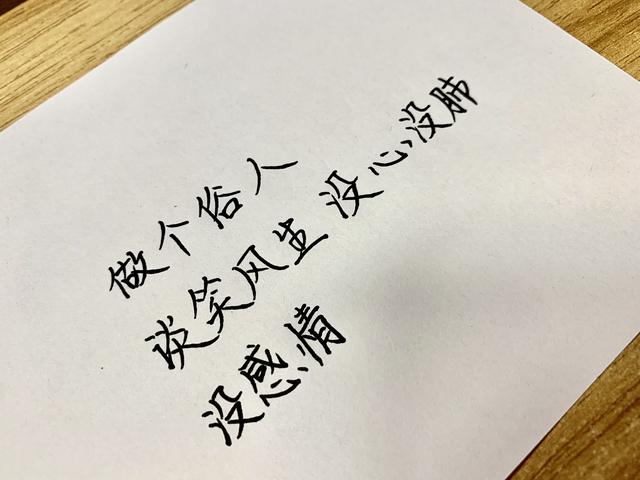 做个俗人
谈笑风生 没心没肺
没感情